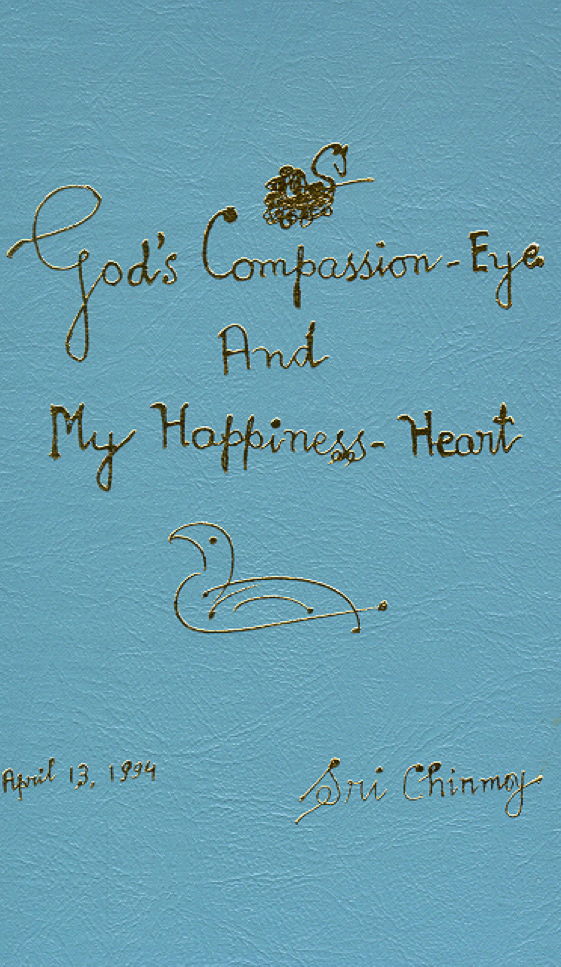 God's Compassion-Eye
And
My Happiness-Heart
April 13, 1994
Sri Chinmoy